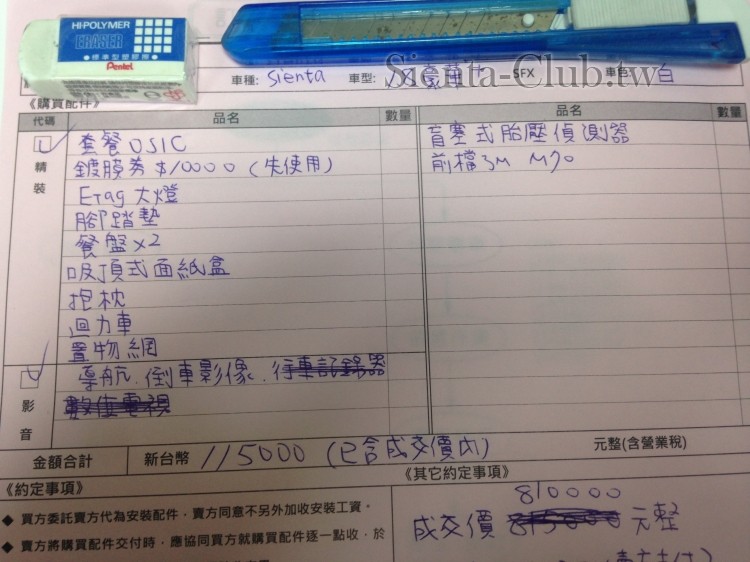 HI-POLYMER
ERASER
●標準型塑膠擦●
Pentel
Sienta-Club.tw
車種: Sienta 車型: SFX 車色: 白
《購買配件》
代碼 品名 數量 品名 數量
精裝
套餐 OSIC
鍍膜券 $10000 (失使用)
ETag 大燈
腳踏墊
餐盤x2
吸頂式面紙盒
抱枕
迴力車
置物網
盲塞式胎壓偵測器
前檔3M M70
影音
導航.倒車影像.行車記錄器
數位電視
金額合計 新台幣 115000 (已含成交價內) 元整(含營業稅)
《約定事項》
◆ 買方委託賣方代為安裝配件,賣方同意不另外加收安裝工資。
◆ 賣方將購買配件交付時,應協同買方就購買配件逐一點收,於
《其它約定事項》
810000
成交價 815000 元整